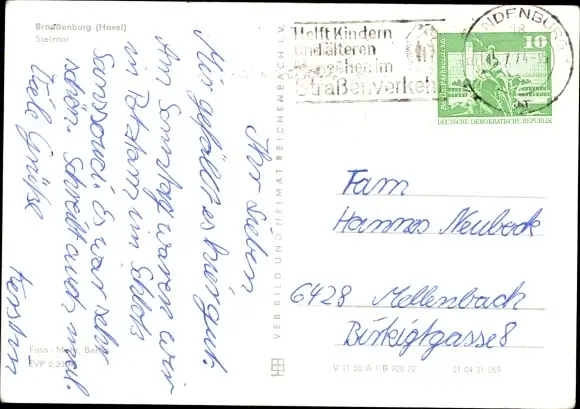 Brandenburg (Havel)
Steintor
Ihr Lieben
Mir gefällt es hier gut.
Am Sonntag waren wir
in Potsdam im Schloß
Sanssouci. Es war sehr
schön. Schreibt auch mal.
Viele Grüße
Kerstin
Foto:
EVP 0,20
VEB BILD UND HEIMAT REICHENBACH I. V.
Helft Kindern
und älteren
Menschen im
Straßenverkehr
NDENBURG
18
15.7.74-15
10
DEUTSCHE DEMOKRATISCHE REPUBLIK
Fam
Hannes Neubeck
6428 Mellenbach
Birkigtgasse 8
V 11 50 A 1/B 928 72
01 04 31 069